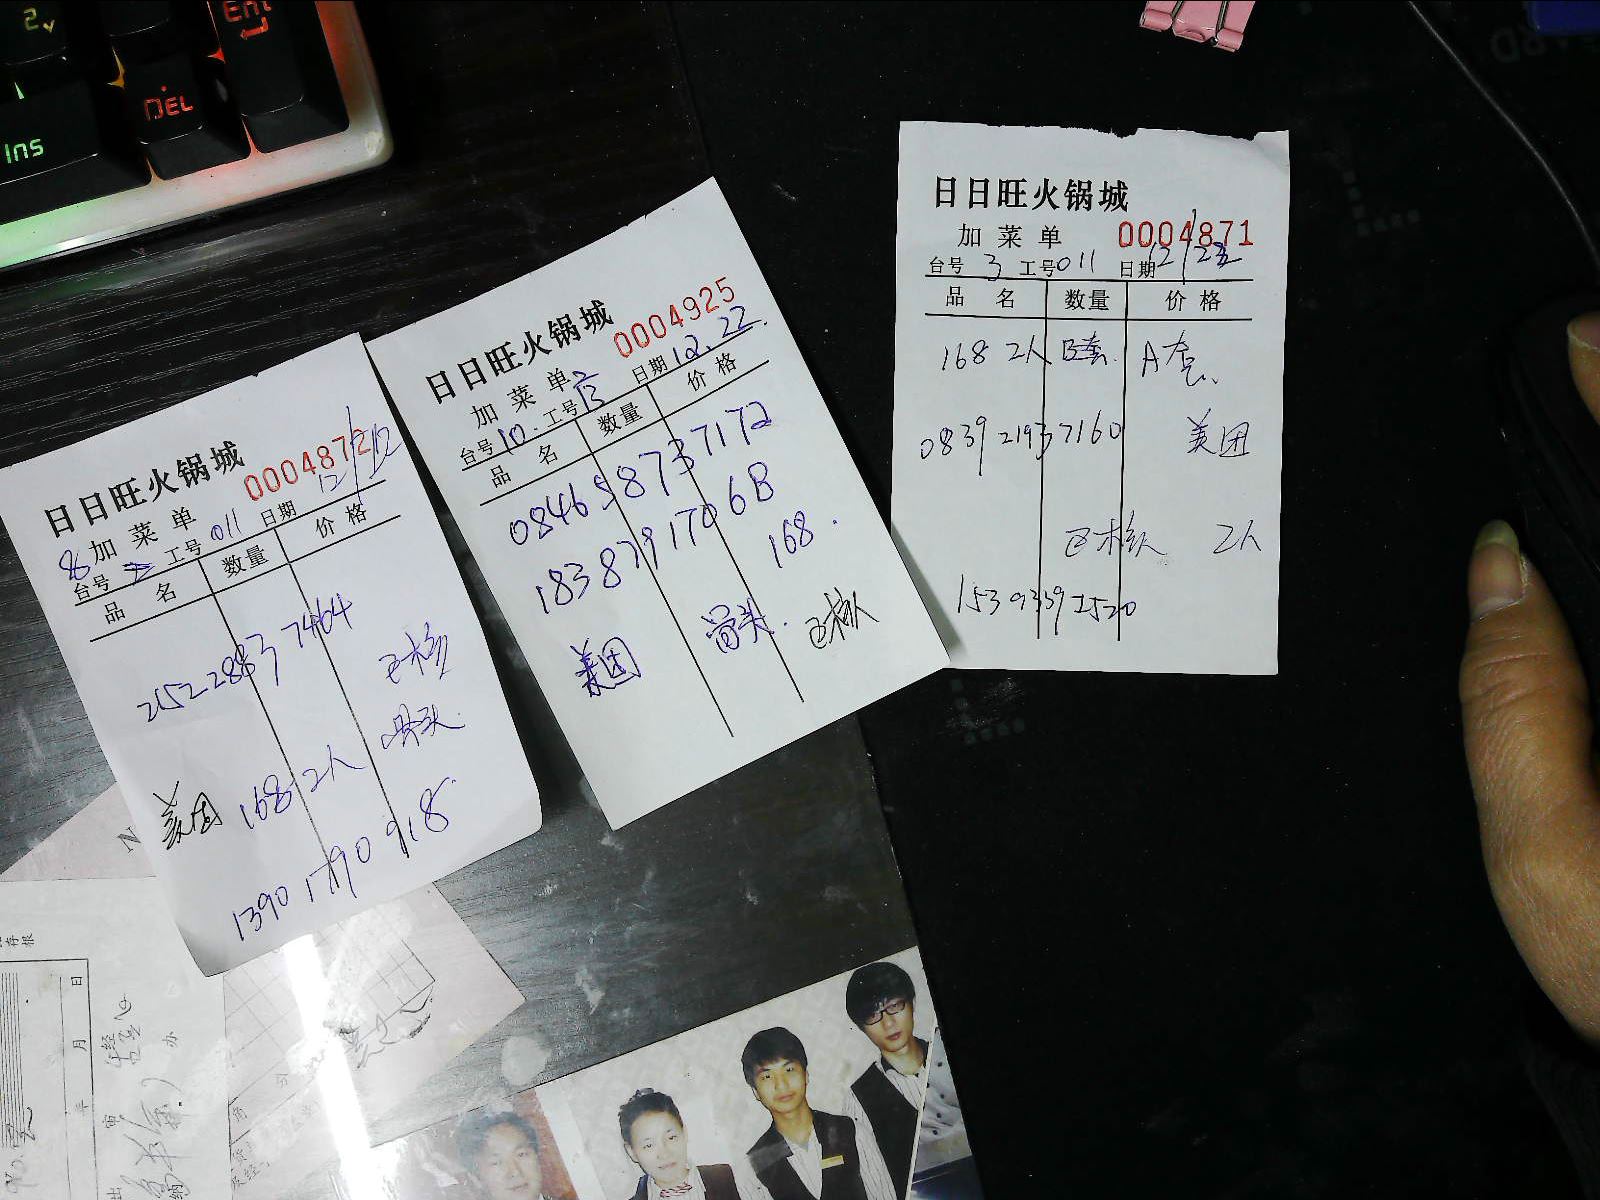 2
Ent
DEL
Ins
日日旺火锅城
加菜单 0004872
台号 8 工号 011 日期 12/22
品名 数量 价格
215228837464
已核
骨头
美团 168 2人
日日旺火锅城
加菜单 0004925
台号 10. 工号 日期 12.22.
品名 数量 价格
084658737172
18387917068
168.
美团 骨头. 已核
日日旺火锅城
加菜单 0004871
台号 3 工号 011 日期 12/22
品名 数量 价格
168 2人 B套. A套.
083921937160 美团
已核 2人
15393391520
存根
日
月
年
审
办
出
纳